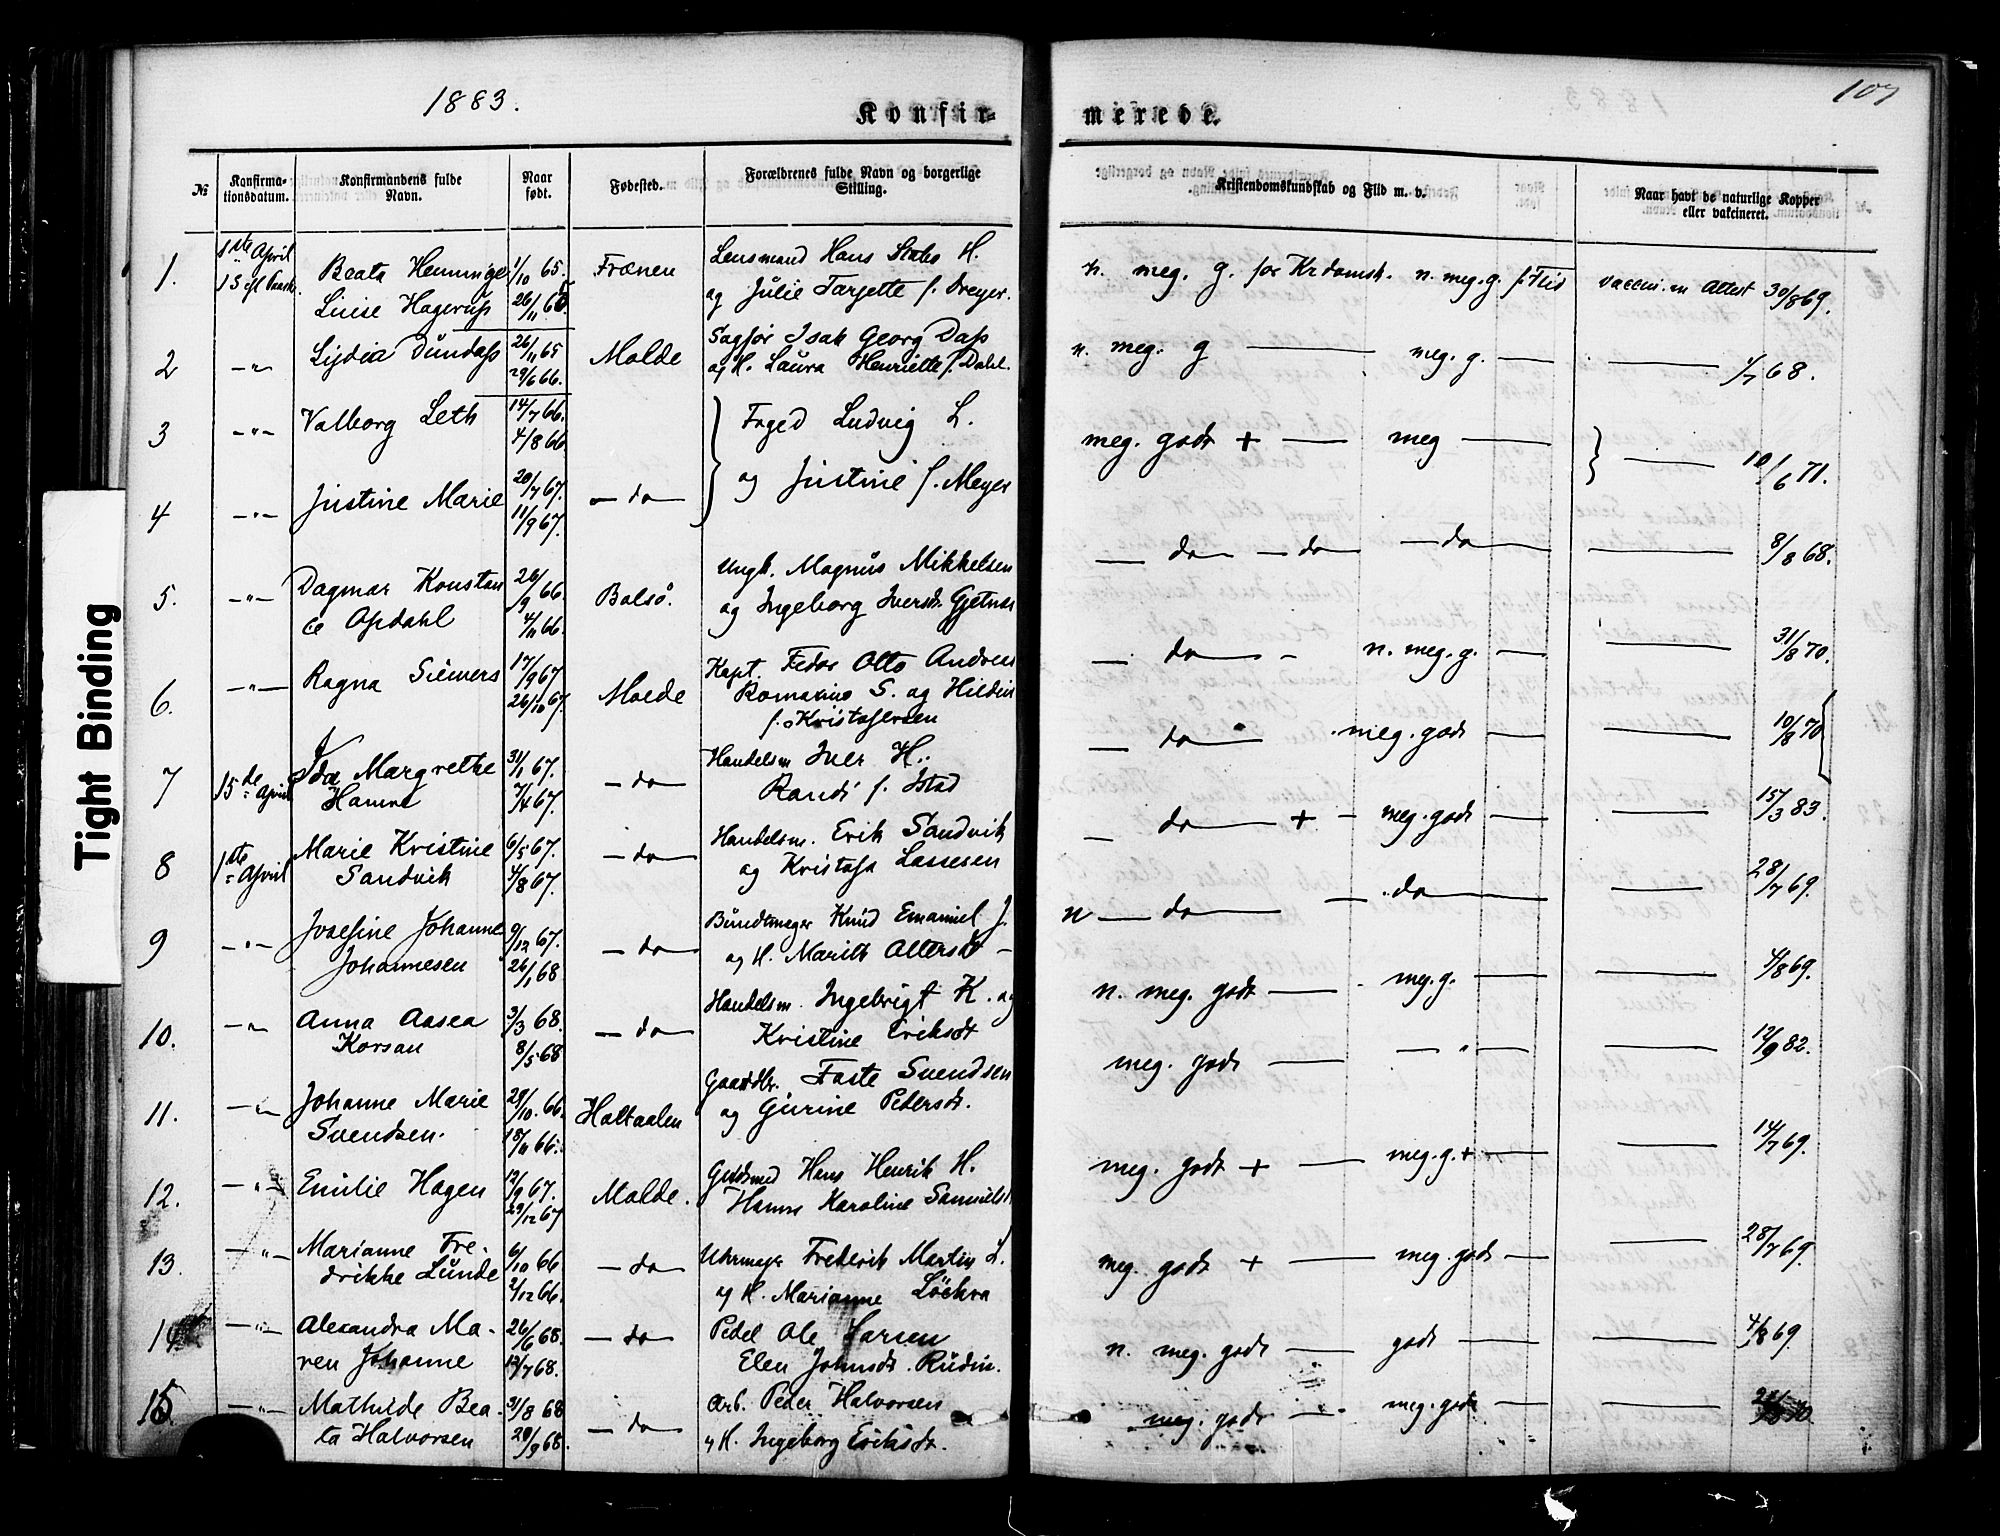 1883.
107
Konfir-
merede.
№
Konfirma-
tionsdatum.
Konfirmandens fulde
Navn.
Naar
født.
Fødested.
Forældrenes fulde Navn og borgerlige
Stilling.
Kristendomskundskab og Flid m. v.
Naar havt de naturlige Kopper
eller vakcineret.
1.
1ste April
1 S efl Paaske
Beata Hemminge
Luise Hagerup
1/10 65.
26/11 65
Frænen
Lensmand Hans H.
og Julie Tarjette f. Dreyer.
n. meg. g. for Krdomsk. n. meg. g. f. Flid
vaccin. en Attest 30/8 69.
2
—"—
Lydia Dundass
26/11 65
29/6 66.
Molde
Sagfør Isak Georg Dass
og H. Laura Henriette f. Dahl.
n. meg. g — meg. g. —
— 1/7 68.
3
—"—
Valborg Leth
14/7 66.
4/8 66
Foged Ludvig L.
og Justine f. Meyer
meg. godt + — meg —
— 10/6 71.
4
—"—
Justine Marie
20/7 67.
11/9 67.
— do —
— do — do — do —
— 8/8 68.
5.
—"—
Dagmar Konstan
ce Opdahl
26/9 66.
4/11 66.
Bolsö.
Ungk. Magnus Mikkelsen
og Ingeborg Iversdt. Gjetnæs
— do — n. meg. g. —
— 31/8 70.
6.
—"—
Ragna Siewers
17/9 67
26/10 67.
Molde
Kapt. Fedor Otto Andreas
Romanus S. og Hildin
f. Kristofersen
— do meg. godt —
— 10/8 70
7
15de April
Ida Margrethe
Hamre
31/1 67.
7/4 67.
— do —
Handelsm Iver H.
Randi f. Istad
— do + — meg. godt —
— 15/3 83.
8
1ste April
Marie Kristine
Sandvik
6/5 67.
4/8 67.
— do —
Handelsm. Erik Sandvik
og Kristofa Lassesen
n — do — — do —
— 28/7 69.
9
—"—
Josefine Johanne
Johannesen
9/12 67.
26/1 68
— do —
Bundtmager Knud Emanuel J.
og H. Marith Ottersdt —
n. meg. godt — meg. g. —
— 4/8 69.
10.
—"—
Anna Aasea
Korsan
3/3 68.
8/5 68
— do —
Handelsm. Ingebrigt K. og
Kristine Eriksdt
meg. godt — — " —
— 12/9 82.
11.
—"—
Johanne Marie
Svendsen.
29/10. 66.
18/11 66.
Holtaalen
Gaardbr. Faste Svendsen
og Gurine Pedersdt.
meg. godt + — meg. g. + —
— 14/7 69.
12.
—"—
Emilie Hagen
12/9 67.
29/12 67
Molde.
Guldsmed Hans Henrik H.
Hanna Karoline Samuelsd
meg. godt + — meg. godt —
— 28/7 69.
13.
—"—
Marianne Fre-
drikke Lunde
6/10 66
2/12 66.
— do —
Uhrmager Frederik Martin L.
og H. Marianne Löchra
n. meg. godt — godt —
— 4/8 69.
14
—"—
Alexandra Ma-
ren Johanne
26/6 68.
12/7 68.
— do
Pedel Ole Larsen
Elen Johnsdt. Rudin.
meg. godt — meg. godt —
15.
—"—
Mathilde Bea-
ta Halvorsen
31/8 68
20/9 68
— do —
Arb. Peder Halvorsen
og H. Ingeborg Eriksdt.
Tight Binding